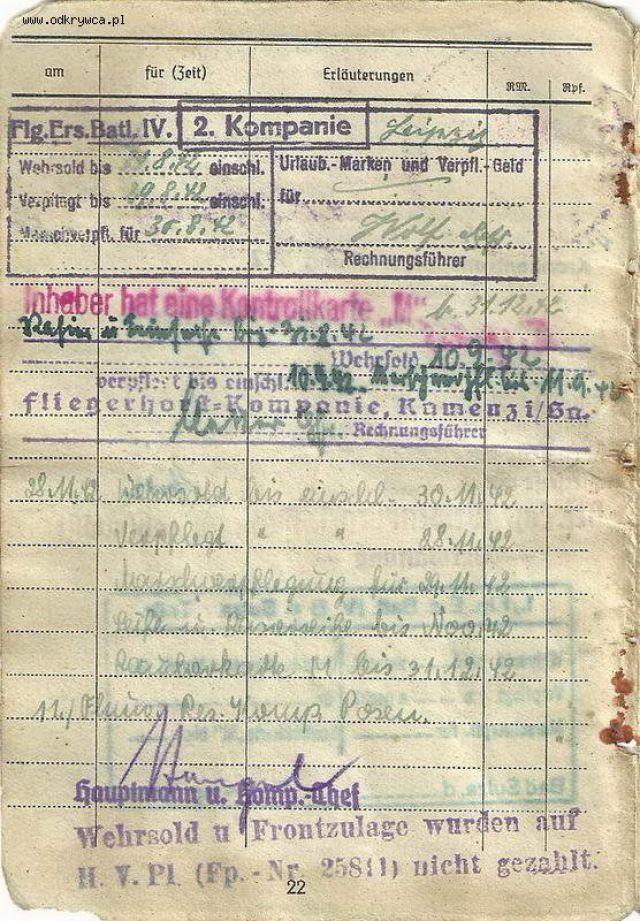 www.odkrywca.pl
am für (Zeit) Erläuterungen RM. Rpf.
Flg.Ers.Batl. IV. 2. Kompanie Leipzig
Wehrsold bis 31.8.42 einschl.
Verpflegt bis 29.8.42 einschl.
Marschverpfl. für 30.8.42
Urlaub.-Marken und Verpfl.-Geld
für
Wolf
Rechnungsführer
Inhaber hat eine Kontrollkarte „M" b. 31.12.42
31.8.42
Wehrsold 10.9.42
verpflegt bis einschl. 10.9.42 11.9.42
Fliegerhorst-Kompanie, Kamenz i/Sa.
Rechnungsführer
28.11.42 Wehrsold bis einschl. 30.11.42
Verpflegt " " 28.11.42
Marschverpflegung für 29.11.42
Seife u. bis Nov. 42
Raucherkarte M bis 31.12.42
Res. Komp. Posen.
Hauptmann u. Komp.-Chef
Wehrsold u Frontzulage wurden auf
H. V. Pl (Fp.-Nr. 25811) nicht gezahlt.
22